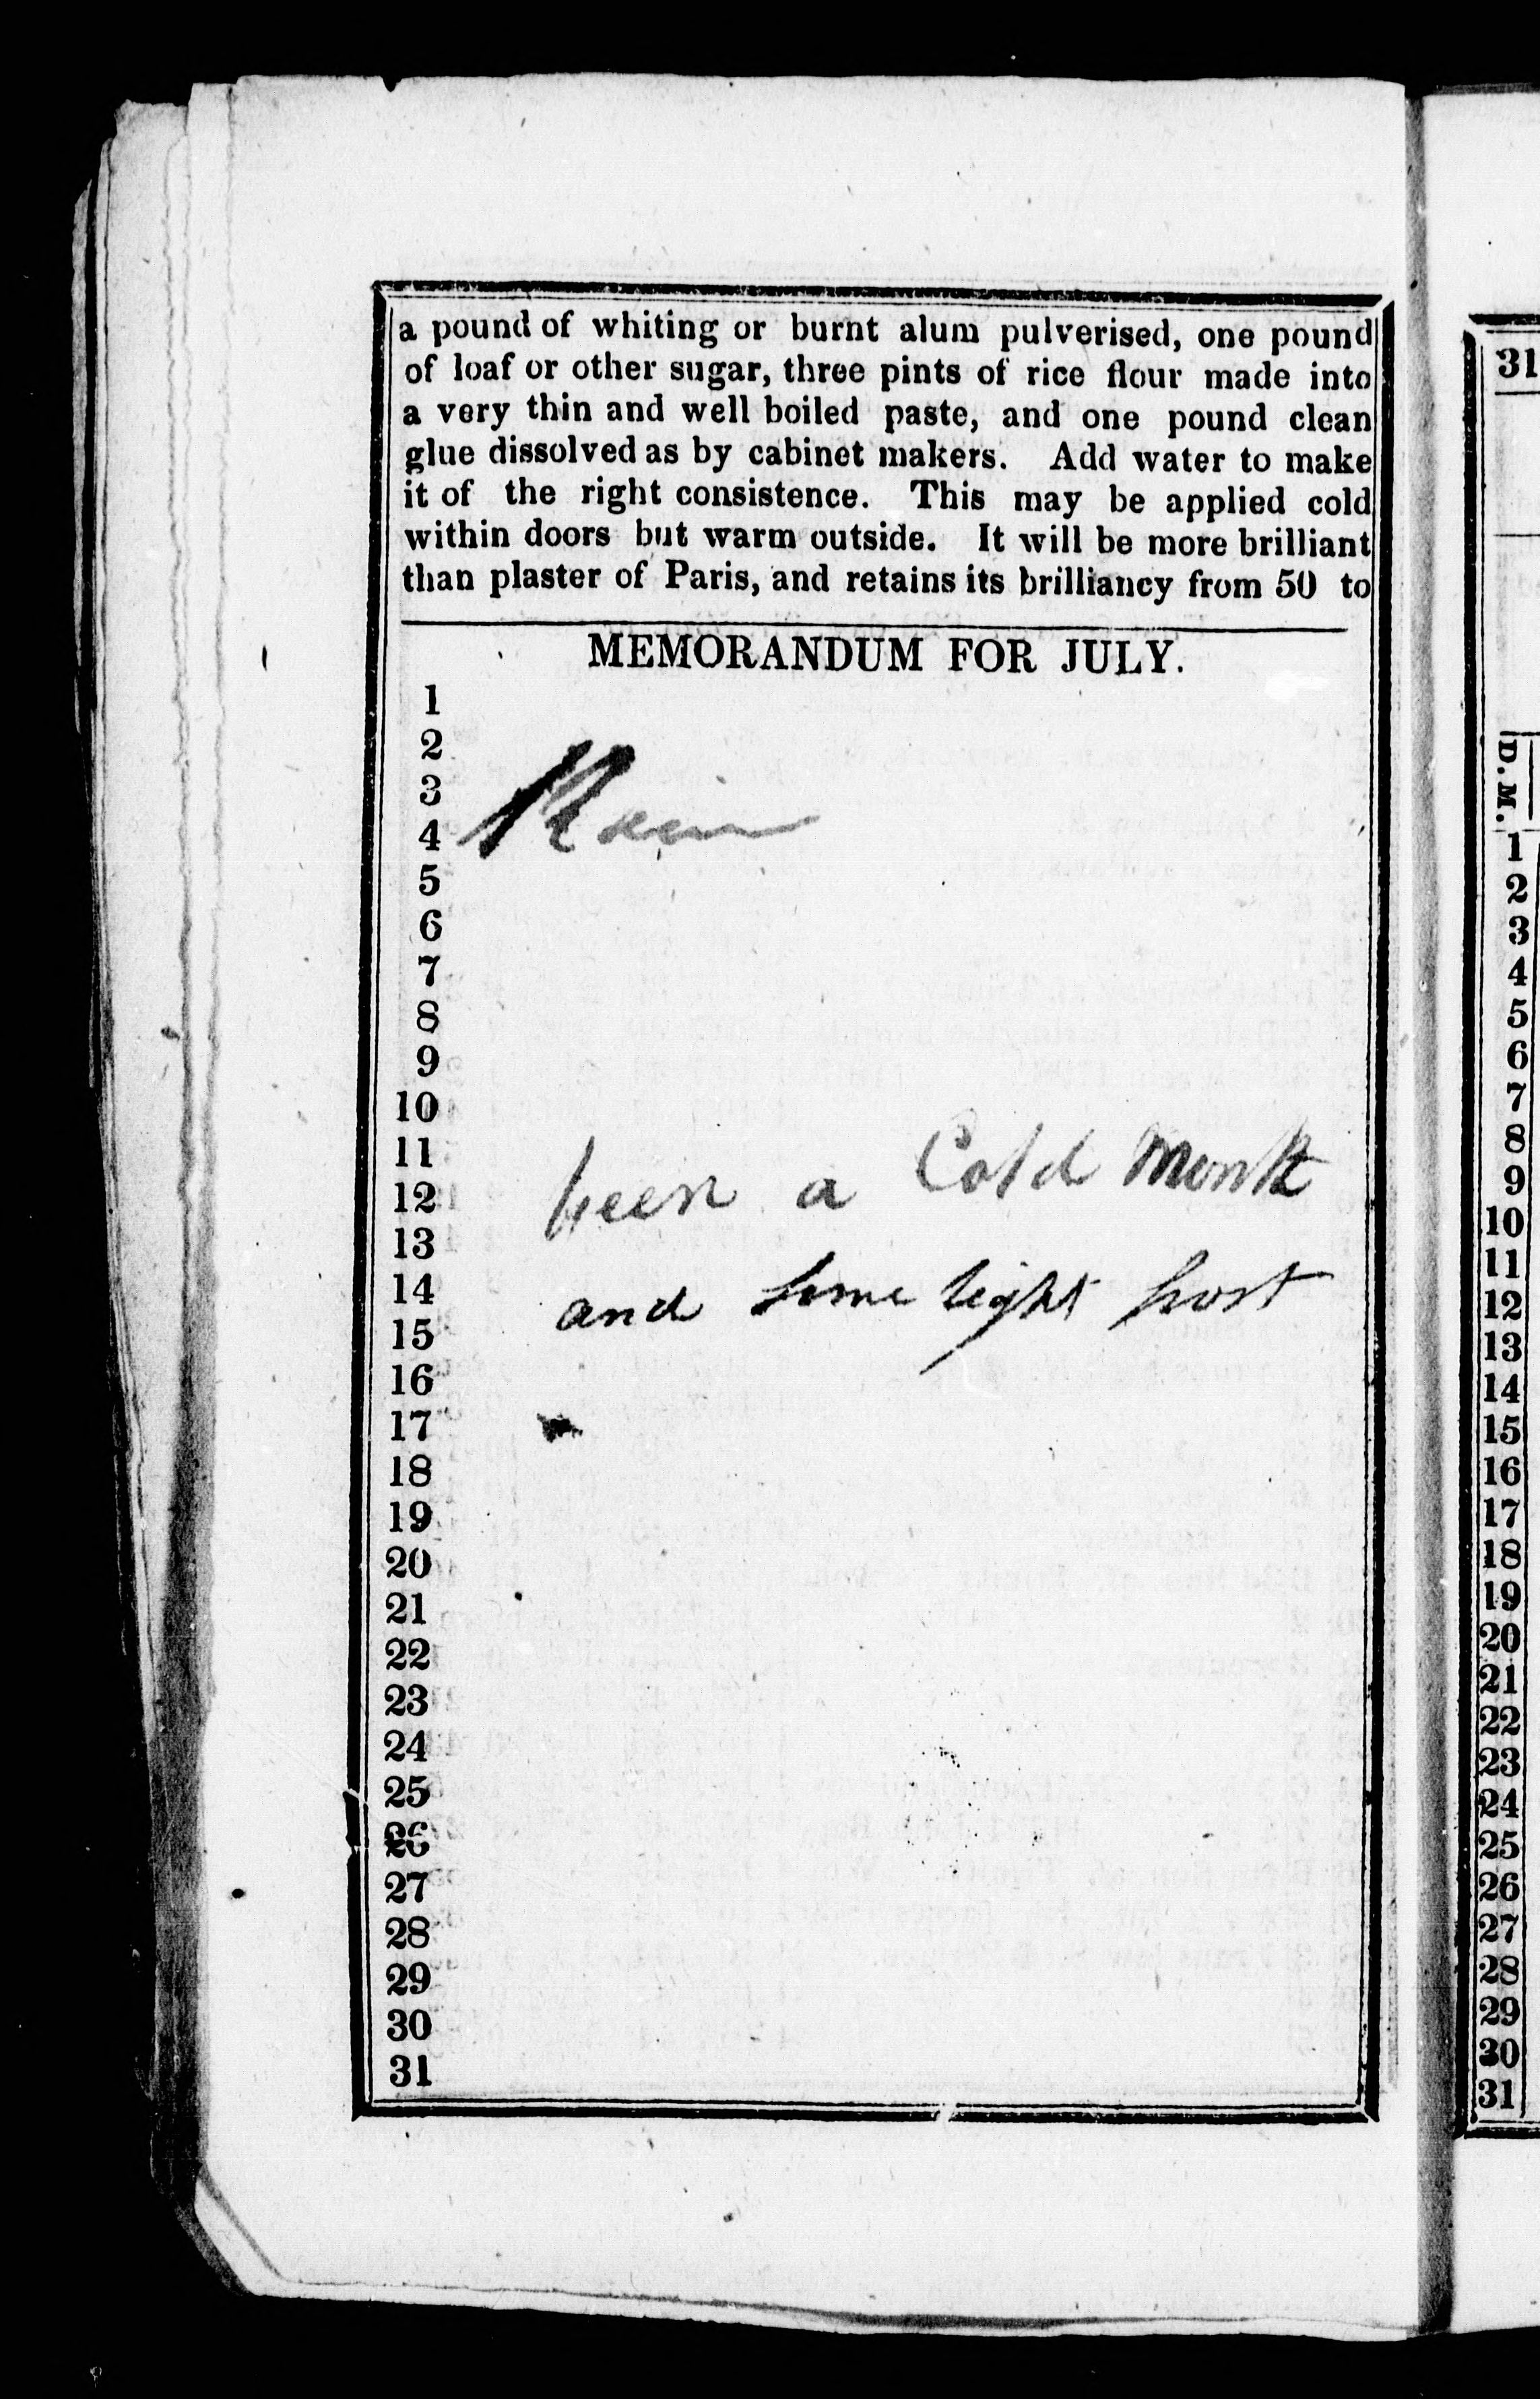 a pound of whiting or burnt alum pulverised, one pound
of loaf or other sugar, three pints of rice flour made into
a very thin and well boiled paste, and one pound clean
glue dissolved as by cabinet makers. Add water to make
it of the right consistence. This may be applied cold
within doors but warm outside. It will be more brilliant
than plaster of Paris, and retains its brilliancy from 50 to
MEMORANDUM FOR JULY.
1
2
3
4 Rain
5
6
7
8
9
10
11
12 been a Cold Month
13
14
15 and some light frost
16
17
18
19
20
21
22
23
24
25
26
27
28
29
30
31
31
D. M.
1
2
3
4
5
6
7
8
9
10
11
12
13
14
15
16
17
18
19
20
21
22
23
24
25
26
27
28
29
30
31